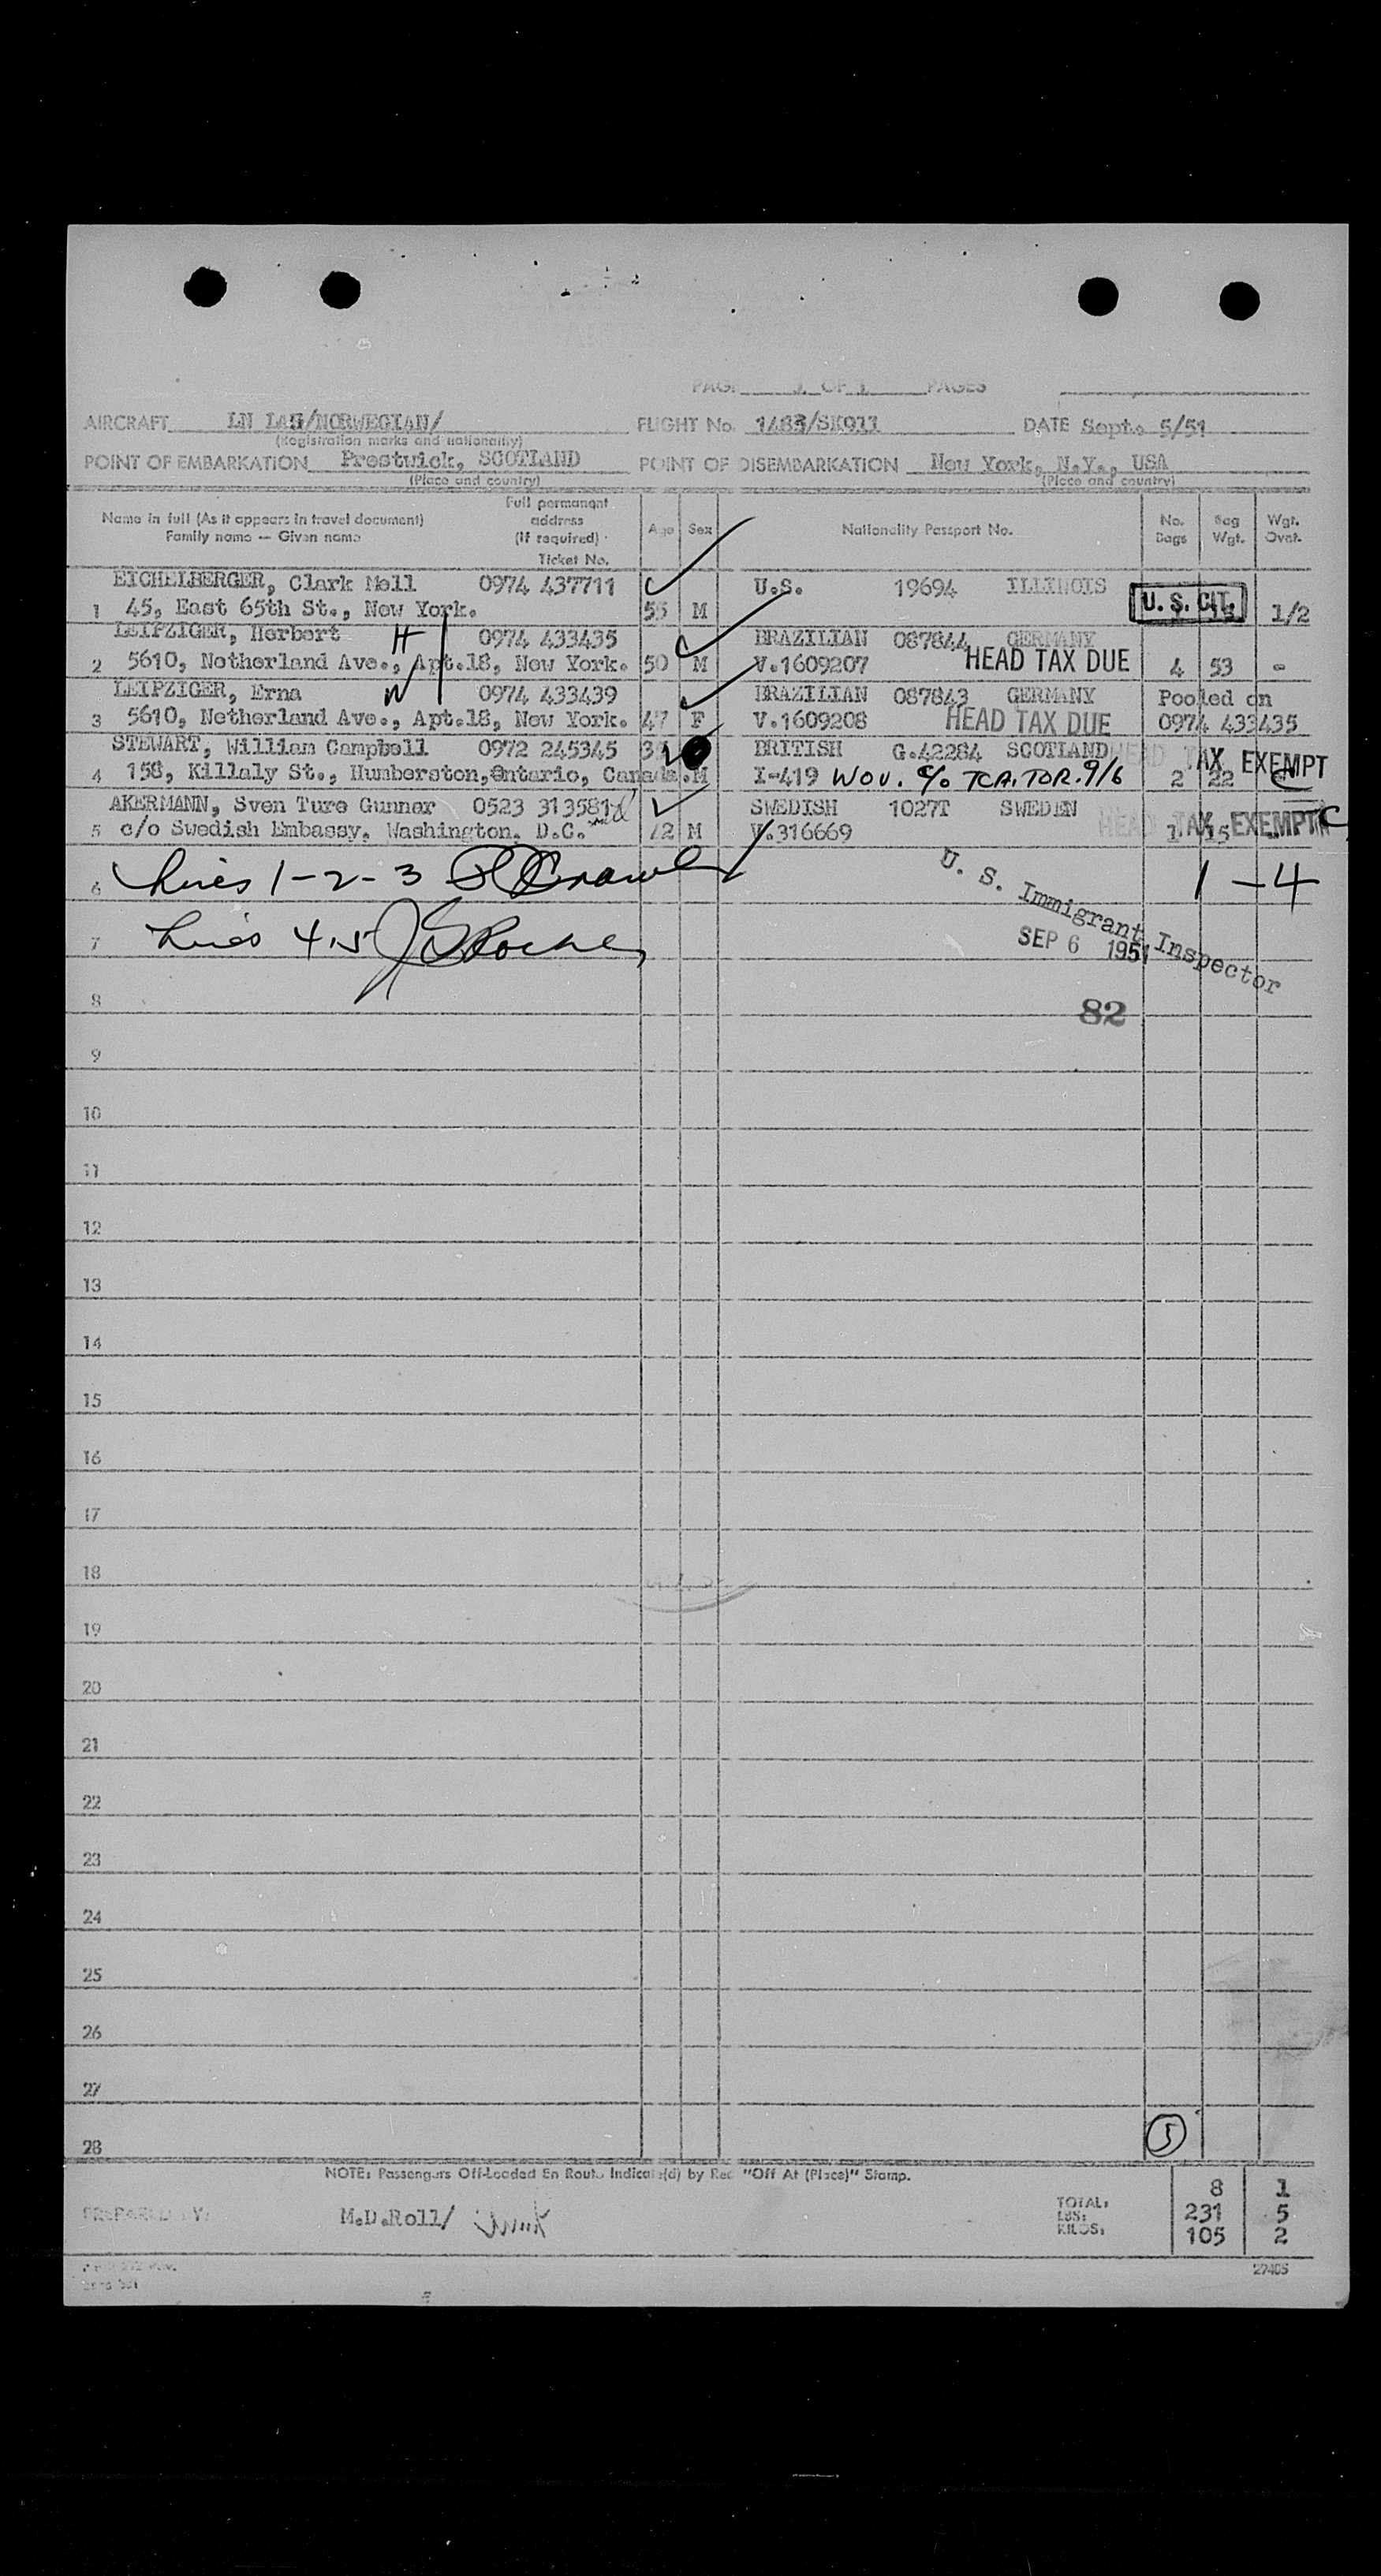 PAGE 1 OF 1 PAGES
AIRCRAFT LN LAG/NORWEGIAN/ FLIGHT No. 1483/SK911 DATE Sept. 5/51
(Registration marks and nationality)
POINT OF EMBARKATION Prestwick, SCOTLAND POINT OF DISEMBARKATION New York, N.Y., USA
(Place and country) (Place and country)
Name in full (As it appears in travel document) Family name — Given name Full permanent address (If required) Ticket No. Age Sex Nationality Passport No. No. Bags Bag Wgt. Wgt. Ovct.
EICHELBERGER, Clark Mell 0974 437711 U.S. 19694 ILLINOIS
1 45, East 65th St., New York. 55 M U. S. CIT. 1/2
LEIPZIGER, Herbert H 0974 433435 BRAZILIAN 087844 GERMANY
2 5610, Netherland Ave., Apt.18, New York. 50 M V.1609207 HEAD TAX DUE 4 53 -
LEIPZIGER, Erna W 0974 433439 BRAZILIAN 087843 GERMANY Pooled on
3 5610, Netherland Ave., Apt.18, New York. 47 F V.1609208 HEAD TAX DUE 0974 433435
STEWART, William Campbell 0972 245345 BRITISH G.42284 SCOTLAND HEAD TAX EXEMPT
4 158, Killaly St., Humberston, Ontario, Canada. M I-419 WOV. c/o TCA. TOR. 9/6 2 22 C
AKERMANN, Sven Ture Gunnar 0523 313581 SWEDISH 1027T SWEDEN
5 c/o Swedish Embassy, Washington. D.C. M V.316669 HEAD TAX EXEMPT C
6 Lines 1-2-3 1-4
U. S. Immigrant Inspector
7 Lines 4.5
SEP 6 1951
8
82
9
10
11
12
13
14
15
16
17
18
19
20
21
22
23
24
25
26
27
5
28
NOTE: Passengers Off-Loaded En Route Indicate(d) by Red "Off At (Place)" Stamp.
TOTAL: 8 1
PREPARED BY: M.D.Roll/ LBS: 231 5
KILOS: 105 2
27405